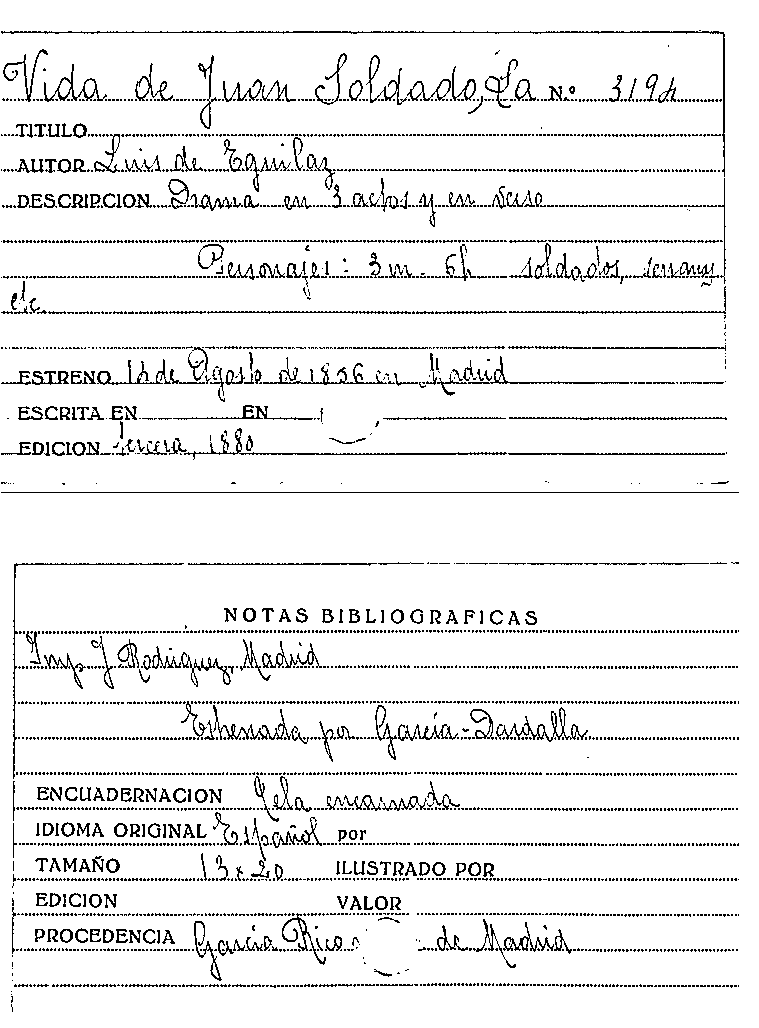 Vida de Juan Soldado, La Nº 3194
TITULO
AUTOR Luis de Eguilaz
DESCRIPCION Drama en 3 actos y en verso
Personajes: 3 m. 6h soldados, serranos
etc.
ESTRENO 14 de Agosto de 1856 en Madrid
ESCRITA EN EN
EDICION tercera, 1880
NOTAS BIBLIOGRAFICAS
Imp. J Rodriguez, Madrid
Estrenada por García-Dardalla
ENCUADERNACION Tela encarnada
IDIOMA ORIGINAL Español por
TAMAÑO 13 x 20 ILUSTRADO POR
EDICION VALOR
PROCEDENCIA García Rico de Madrid